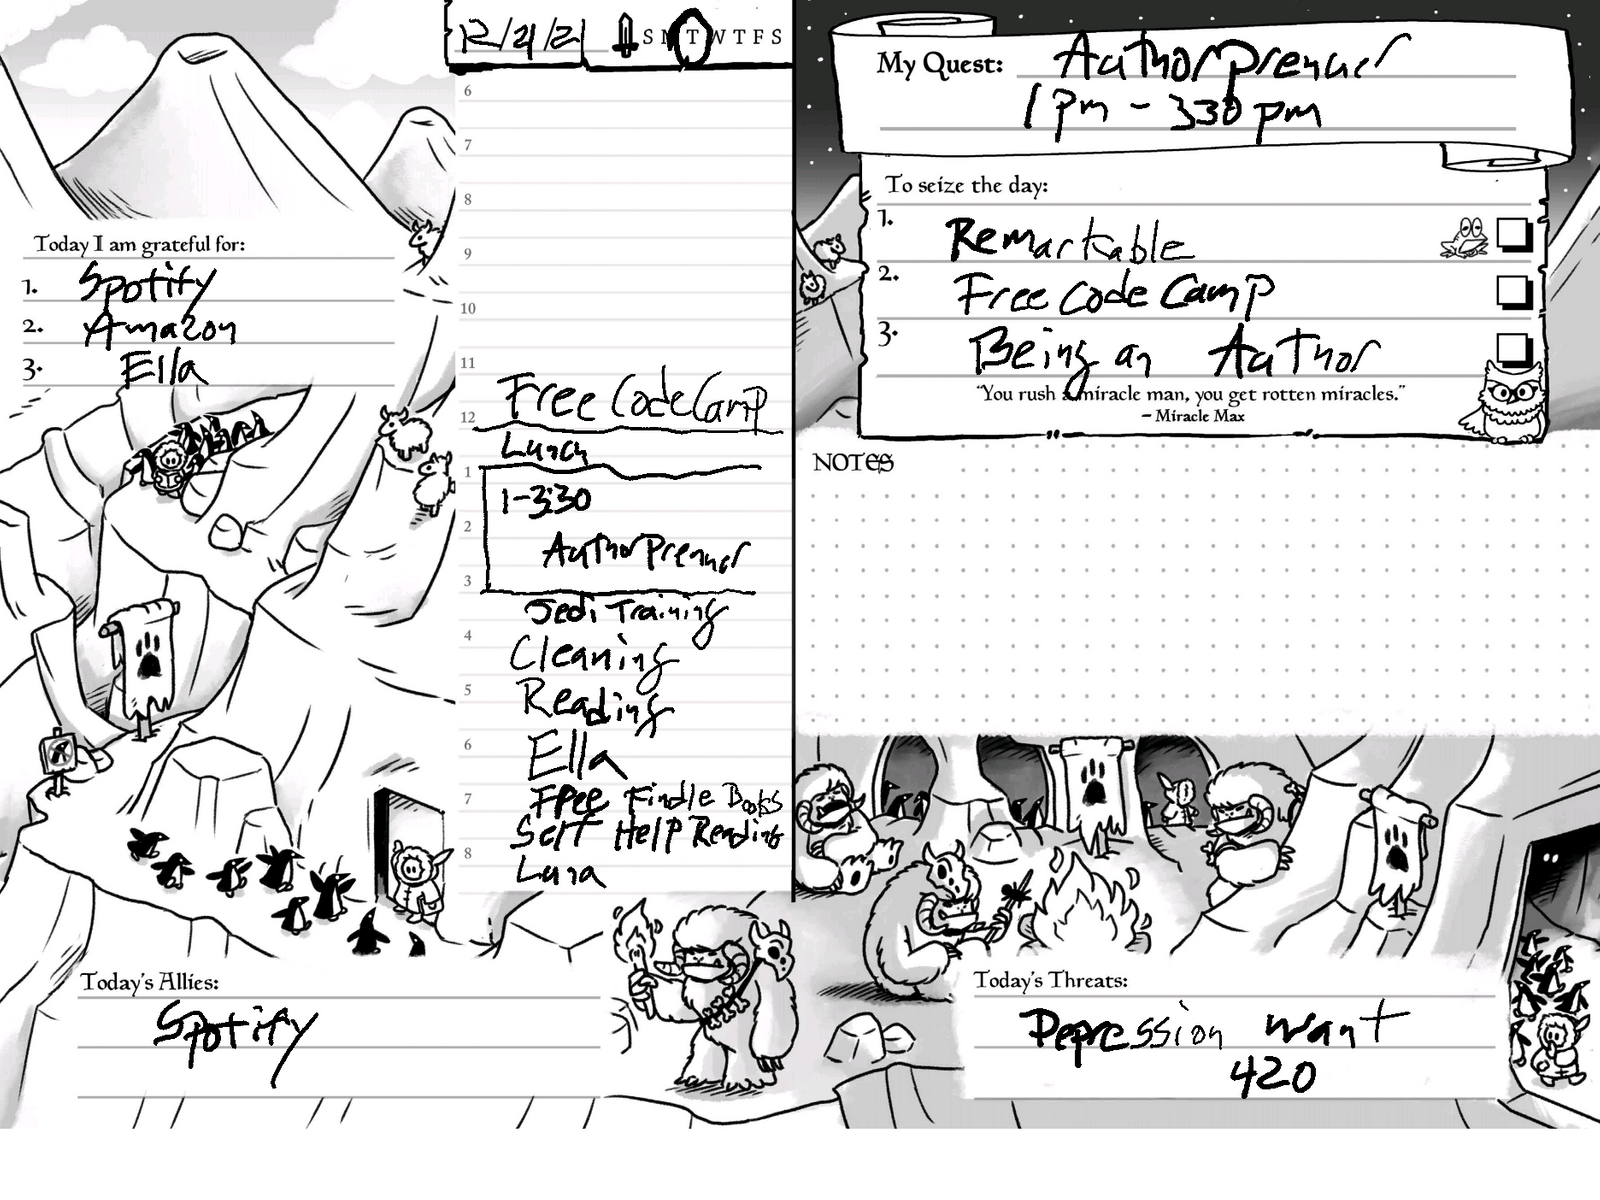 12/21/21 S M T W T F S
6
7
8
9
10
11
Free CodeCamp
12
Lunch
1
1-3:30
2
AuthorPrenuer
3
Jedi Training
4
Cleaning
5
Reading
6
Ella
7
Free Findle Books
Self Help Reading
8
Luna
Today I am grateful for:
1. Spotify
2. Amazon
3. Ella
Today's Allies:
Spotify
My Quest: AuthorPrenuer
1 pm - 330 pm
To seize the day:
1. Remarkable
2. Free Code Camp
3. Being an Author
"You rush a miracle man, you get rotten miracles."
- Miracle Max
NOTES
Today's Threats:
Depression want
420